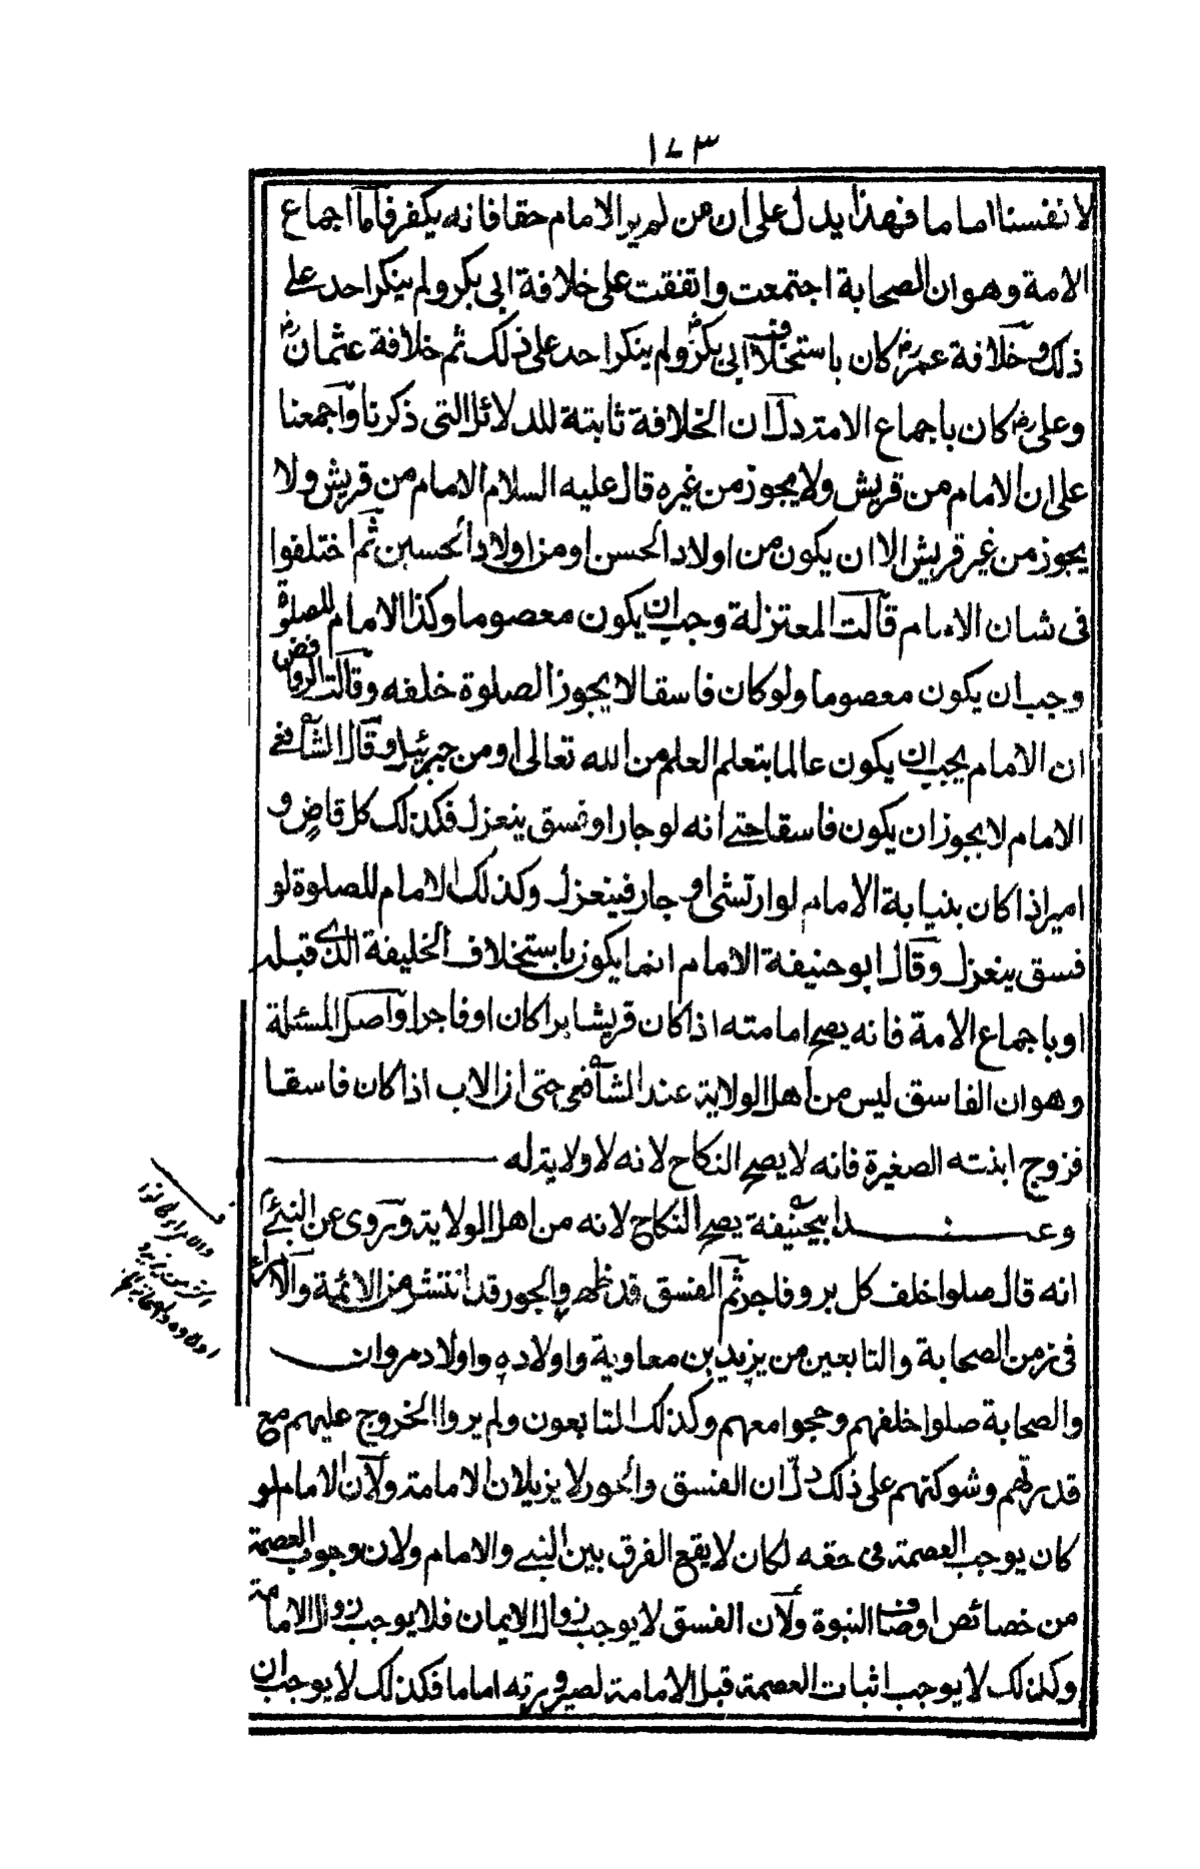 ١٧٣
لانفسنا اماما فهذا يدل على ان من لم ير الامام حقا فانه يكفر فاما اجماع
الامة وهو ان الصحابة اجتمعت واتفقت على خلافة ابى بكر ولم ينكر احد على
ذلك وخلافة عمر رض كان باستخلاف ابى بكر رض ولم ينكر احد على ذلك ثم خلافة عثمان رض
وعلى رض كان باجماع الامة دل ان الخلافة ثابتة للدلائل التى ذكرنا واجمعنا
على ان الامام من قريش ولا يجوز من غيره قال عليه السلام الامام من قريش ولا
يجوز من غير قريش الا ان يكون من اولاد الحسن او من اولاد الحسين ثم اختلفوا
فى شان الامام قالت المعتزلة وجب ان يكون معصوما وكذا الامام للصلوة
وجب ان يكون معصوما ولو كان فاسقا لا يجوز الصلوة خلفه وقالت الروافض
ان الامام يجب ان يكون عالما بتعلم العلم من الله تعالى او من جبرئيل وقال الشافعى
الامام لا يجوز ان يكون فاسقا حتى انه لو جار او فسق ينعزل فكذلك كل قاض و
امير اذا كان بنيابة الامام لو ارتشى او جار فينعزل وكذلك الامام للصلوة لو
فسق ينعزل وقال ابو حنيفة الامام انما يكون باستخلاف الخليفة الذى قبله
او باجماع الامة فانه يصح امامته اذا كان قريشا برا كان او فاجرا واصل المسئلة
وهو ان الفاسق ليس من اهل الولاية عند الشافعى حتى ان الاب اذا كان فاسقا
فزوج ابنته الصغيرة فانه لا يصح النكاح لانه لا ولاية له
وعند ابيحنيفة يصح النكاح لانه من اهل الولاية وروى عن النبى
انه قال صلوا خلف كل بر وفاجر ثم الفسق قد ظهر والجور قد انتشر من الائمة والامراء
فى زمن الصحابة والتابعين من يزيد بن معاوية واولاده واولاد مروان
والصحابة صلوا خلفهم وحجوا معهم وكذلك التابعون ولم يروا الخروج عليهم مع
قدرتهم وشوكتهم على ذلك دل ان الفسق والجور لا يزيلان الامامة ولان الامام لو
كان يوجب العصمة فى حقه لكان لا يقع الفرق بين النبى والامام ولان وجوب العصمة
من خصائص اوصاف النبوة ولان الفسق لا يوجب زوال الايمان فلا يوجب زوال الامامة
وكذلك لا يوجب اثبات العصمة قبل الامامة لصيرورته اماما فكذلك لا يوجب ان